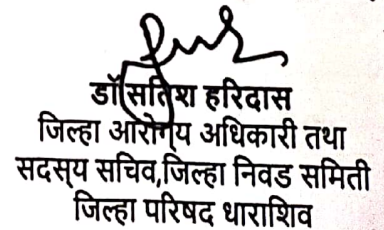 डॉ सतिश हरिदास
जिल्हा आरोग्य अधिकारी तथा
सदस्य सचिव,जिल्हा निवड समिती
जिल्हा परिषद धाराशिव